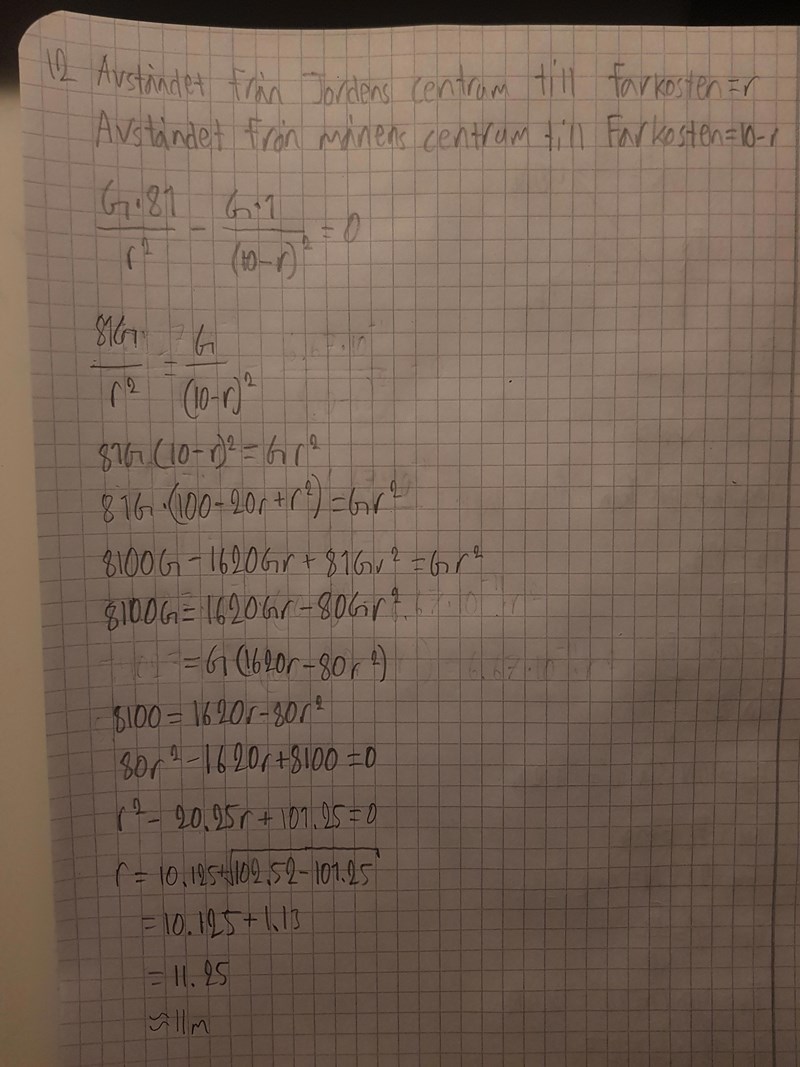 12 Avståndet från Jordens centrum till farkosten=r
Avståndet från månens centrum till Farkosten=10-r
G·81/r² - G·1/(10-r)² = 0
81G/r² = G/(10-r)²
81G·(10-r)² = Gr²
81G·(100-20r+r²)=Gr²
8100G-1620Gr+81Gr²=Gr²
8100G=1620Gr-80Gr²
=G(1620r-80r²)
8100=1620r-80r²
80r²-1620r+8100=0
r²-20.25r+101.25=0
r=10.125+√102.52-101.25
=10.125+1.13
=11.25
≈11m